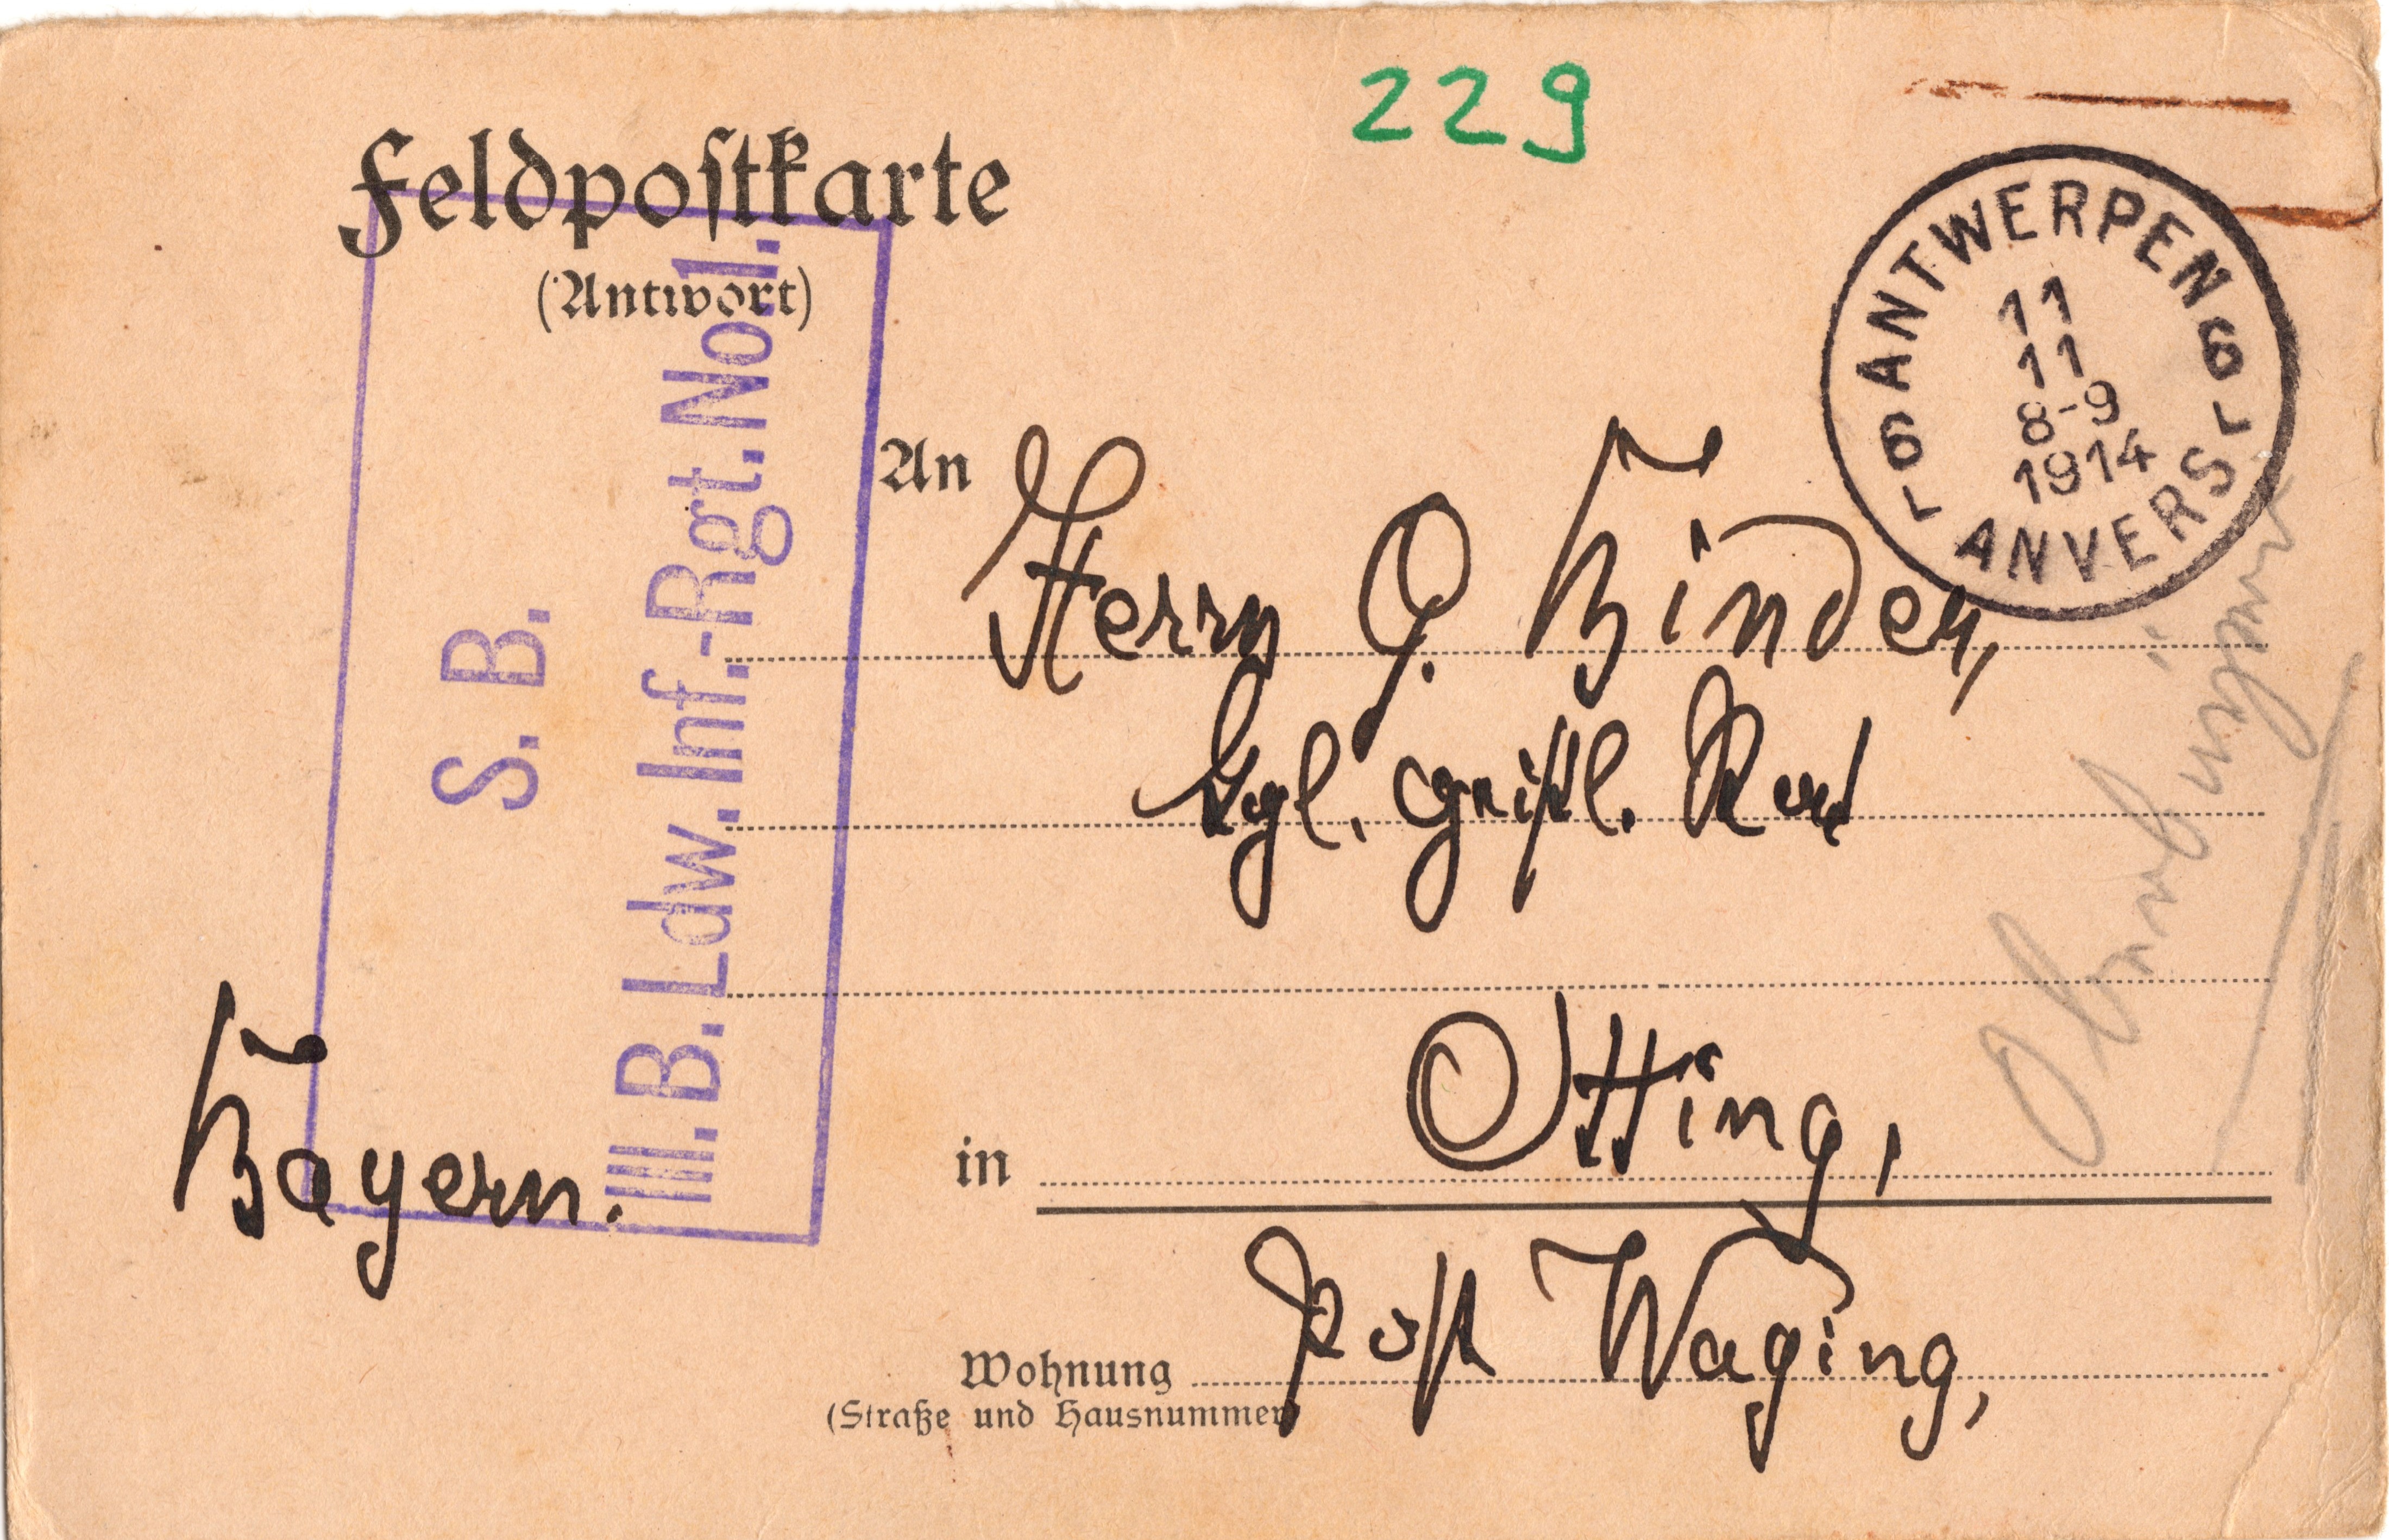 229
Feldpostkarte
(Antwort)
ANTWERPEN
6 6
11
11
8-9
1914
ANVERS
S. B.
III. B. Ldw. Inf.-Rgt. No. 1.
An
Herrn G. Binder,
Kgl. Geistl. Rat
Bayern.
in Otting,
Wohnung Post Waging,
(Straße und Hausnummer)